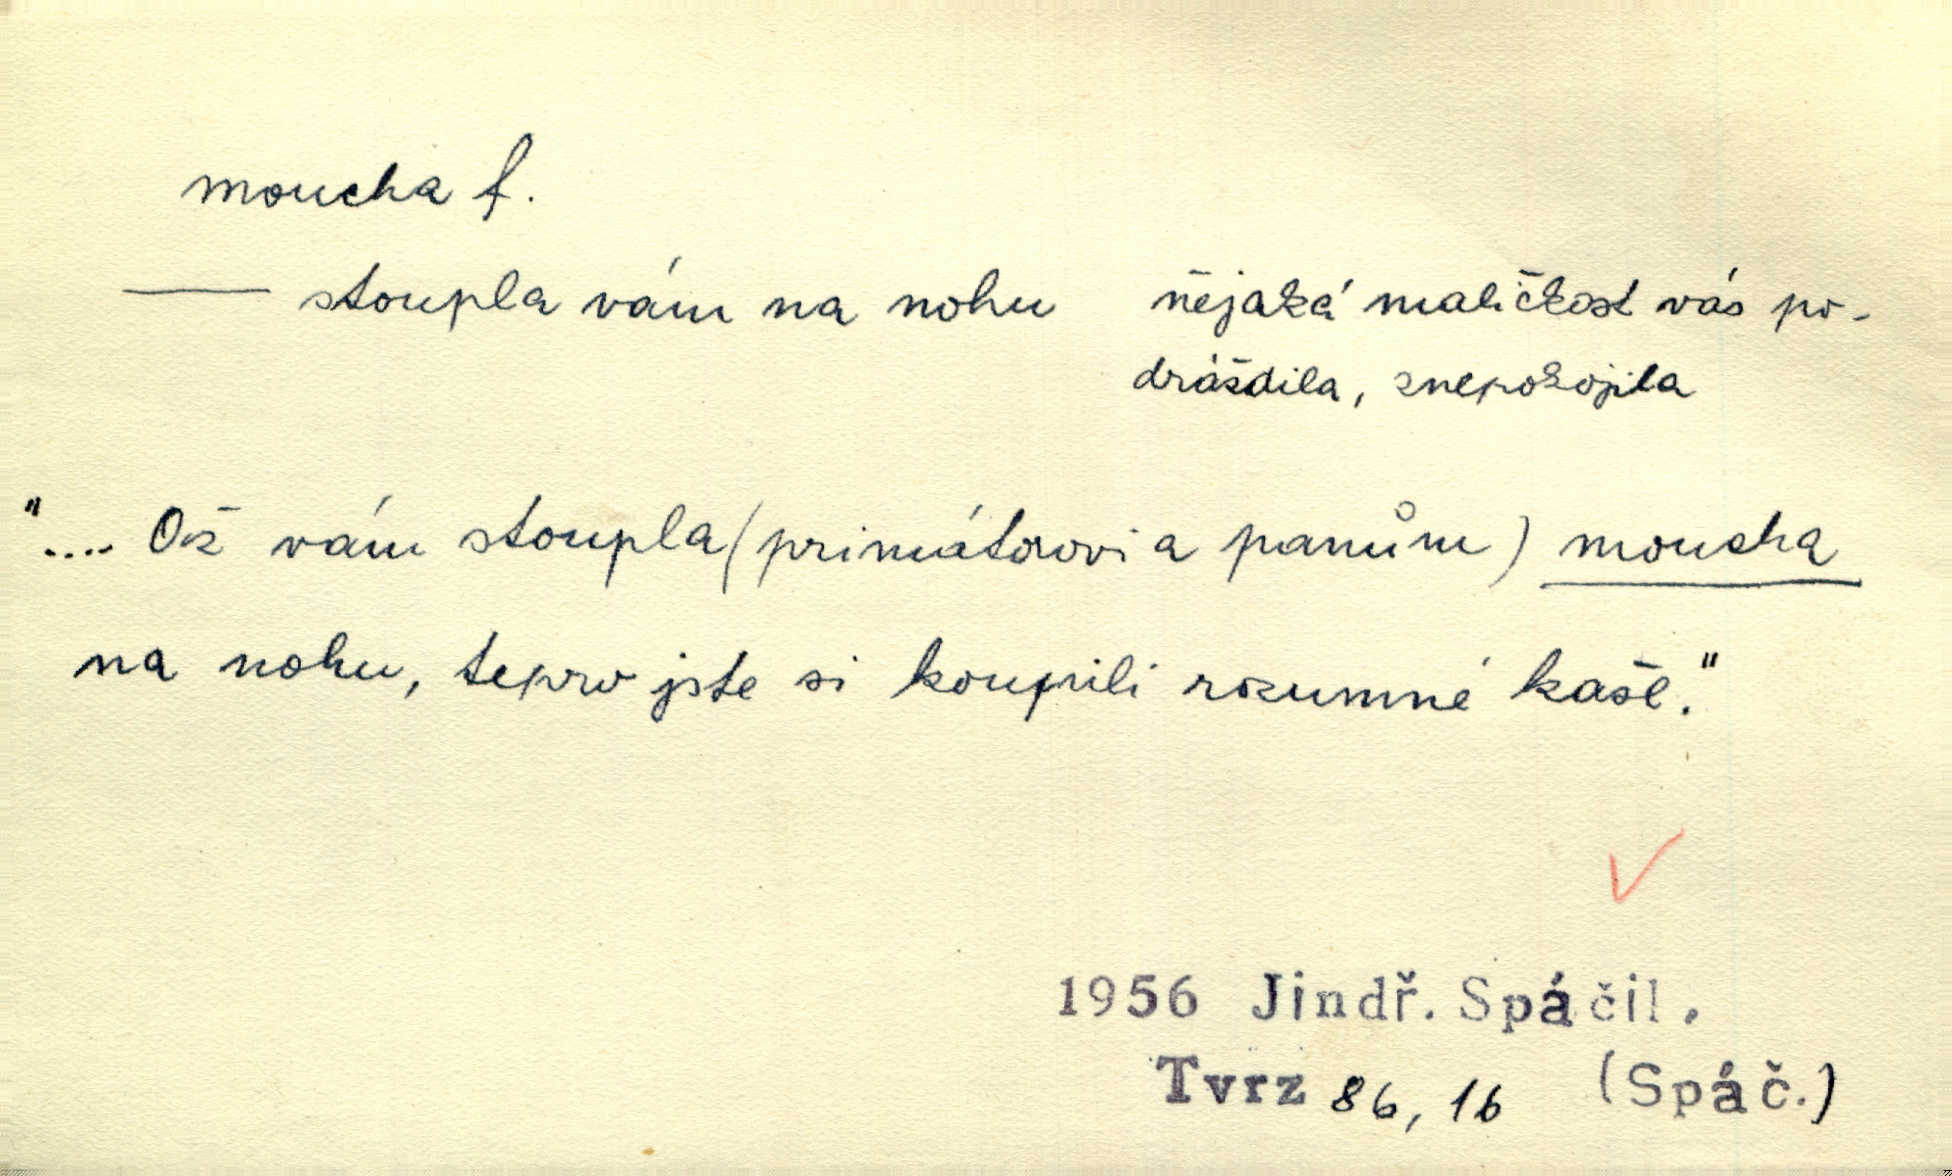 moucha f.
— stoupla vám na nohu nějaká maličkost vás po-
drášdila, znepokojila
".... Až vám stoupla (primátorovi a panům) moucha
na nohu, teprv jste si koupili rozumné kaše."
1956 Jindř. Spáčil.
Tvrz 86, 16 (Spáč.)